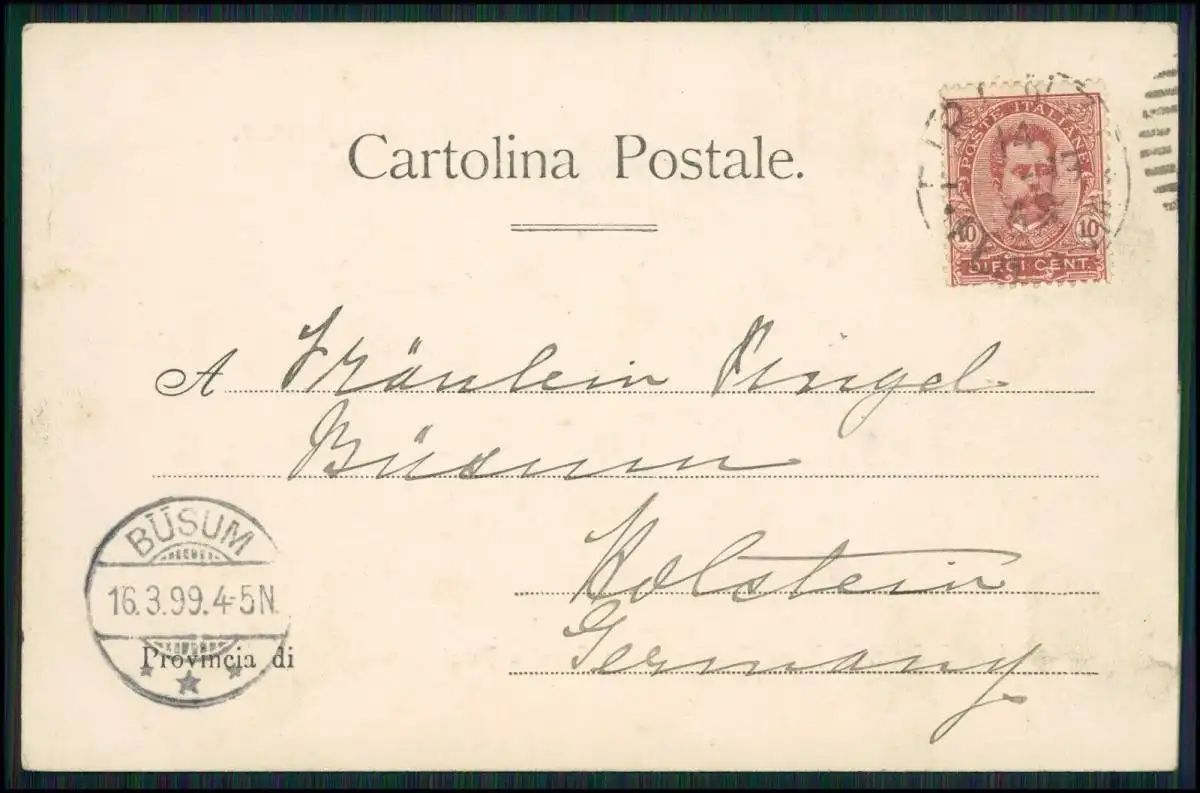 Cartolina Postale.
POSTE ITALIANE
10 10
DIECI CENT.
A Fräulein Pingel
Büsum
Holstein
Germany
BÜSUM
16.3.99.4-5N.
Provincia di